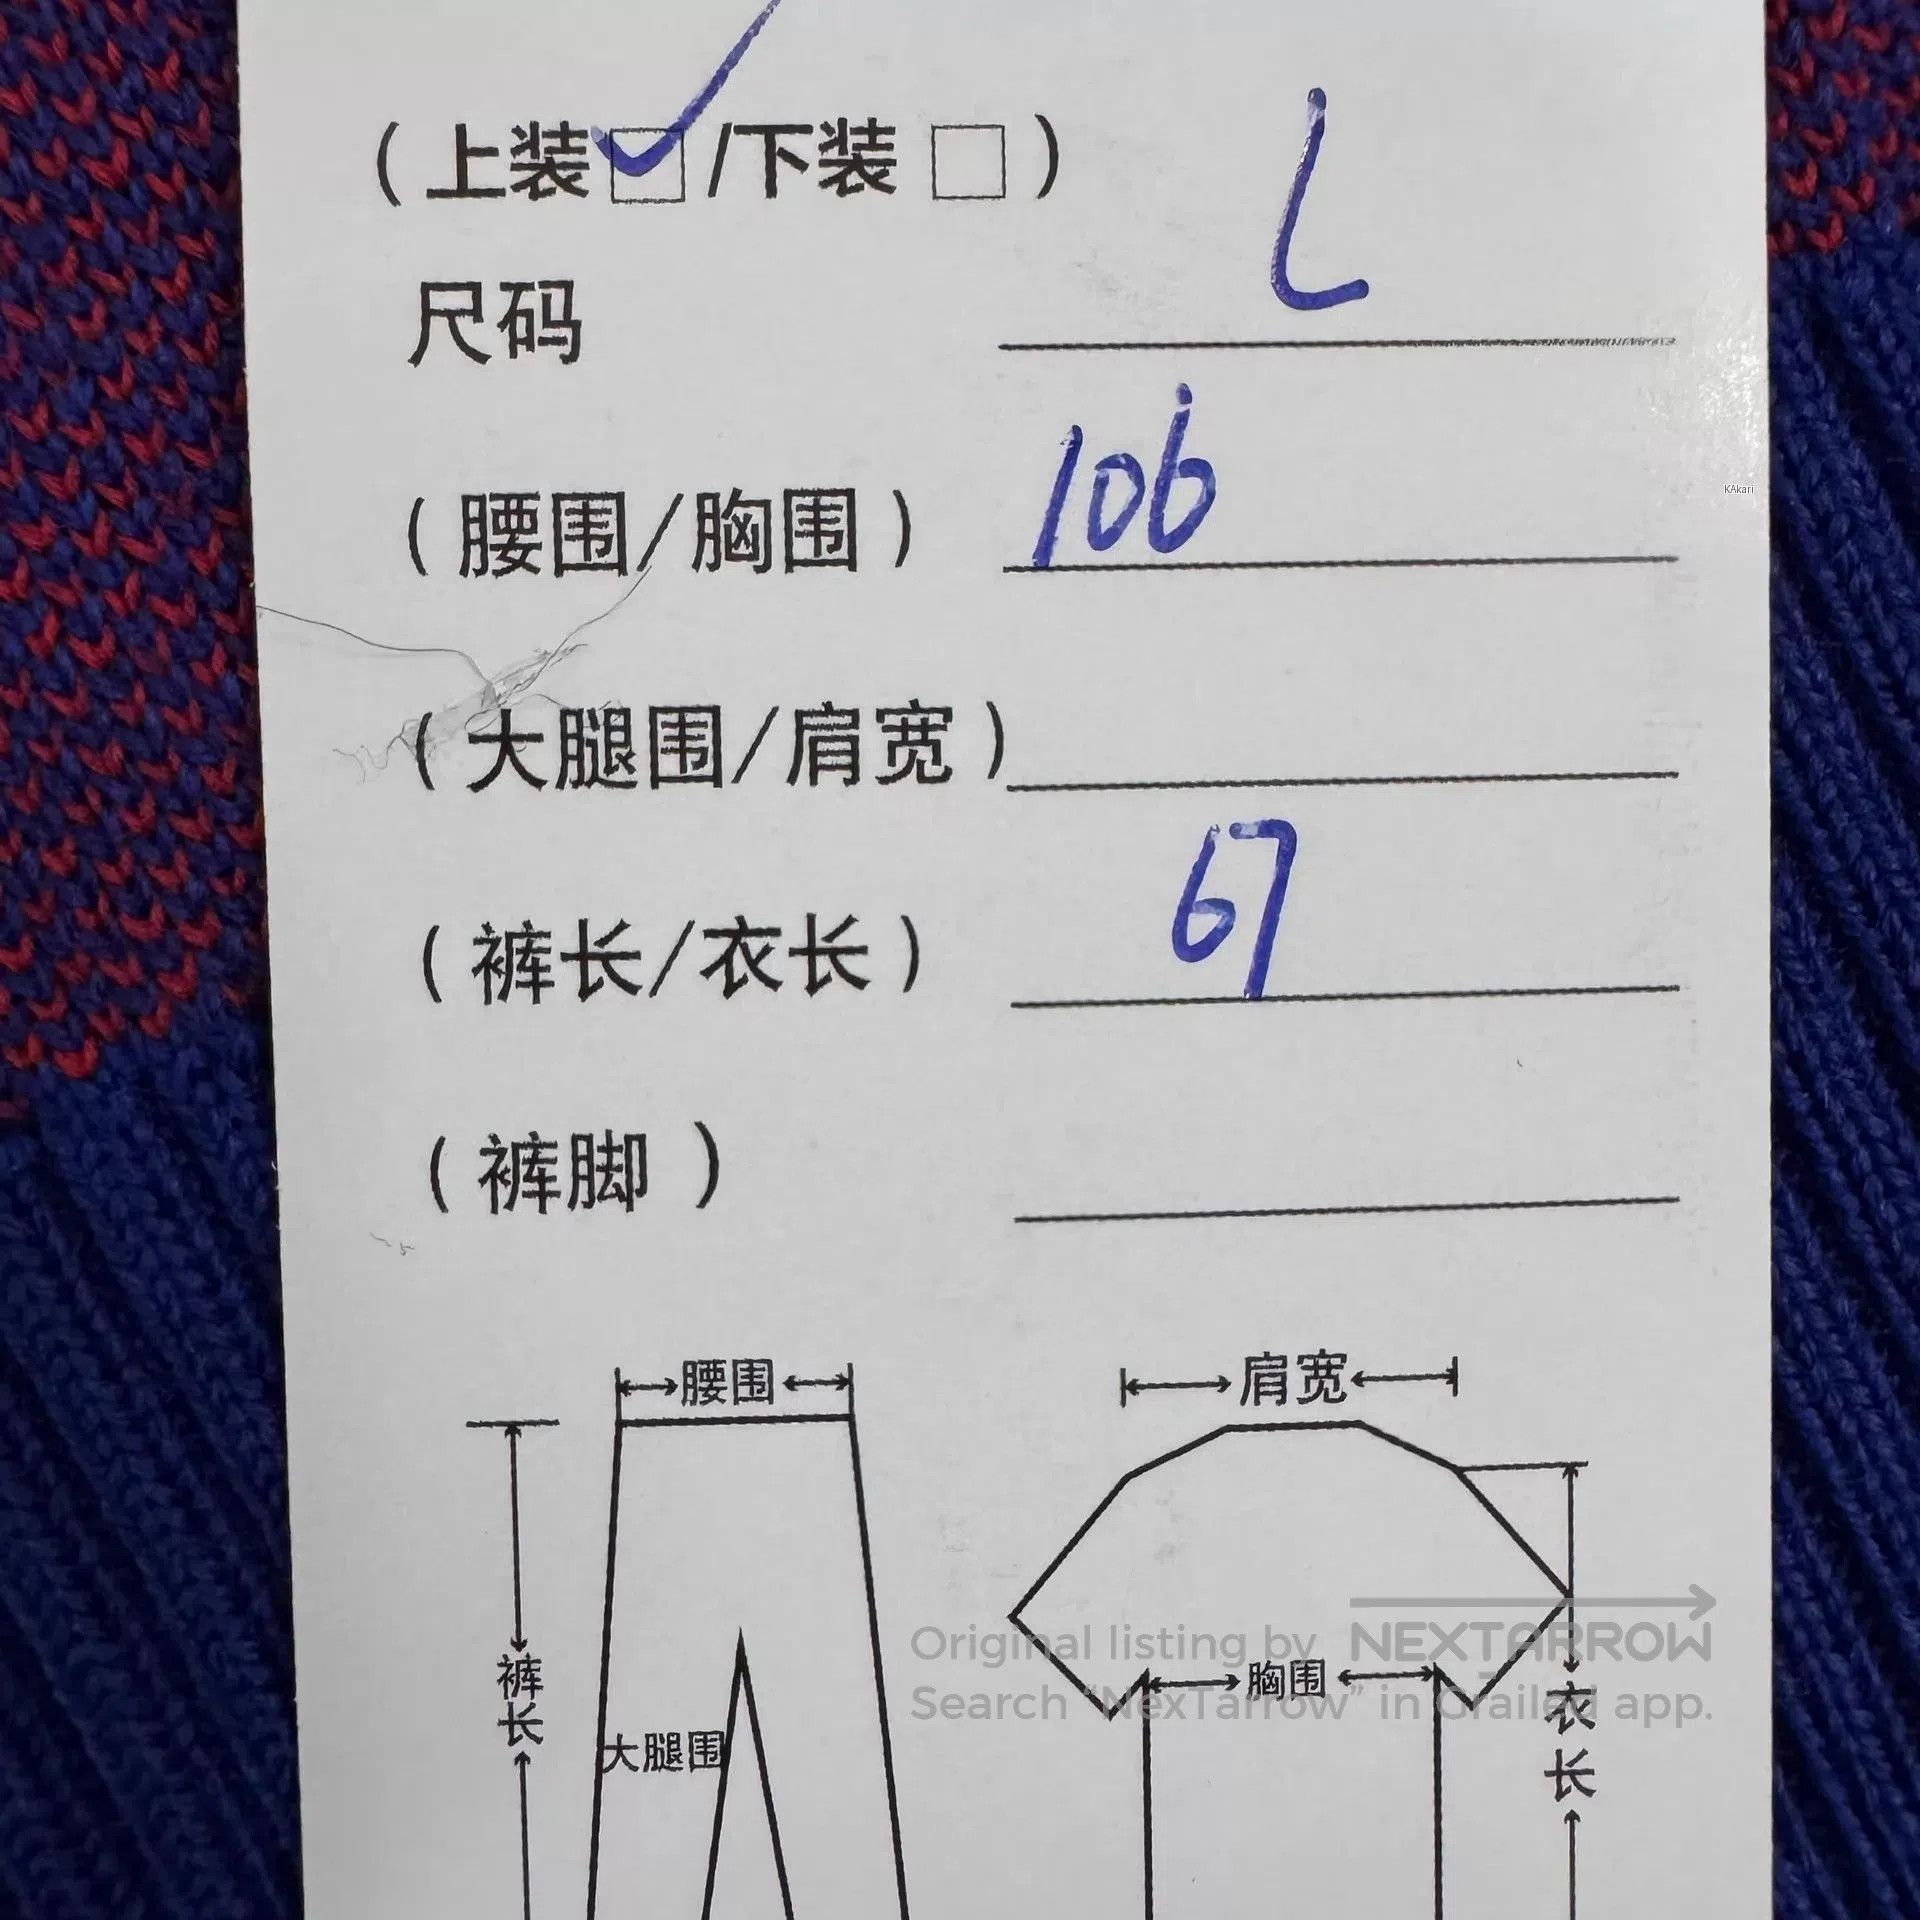 （上装☑/下装☐）
尺码 L
（腰围/胸围） 106
（大腿围/肩宽）
（裤长/衣长） 67
（裤脚 ）
腰围
肩宽
裤长
大腿围
胸围
衣长
KAkari
Original listing by NEXTARROW
Search “NexTarrow” in Grailed app.